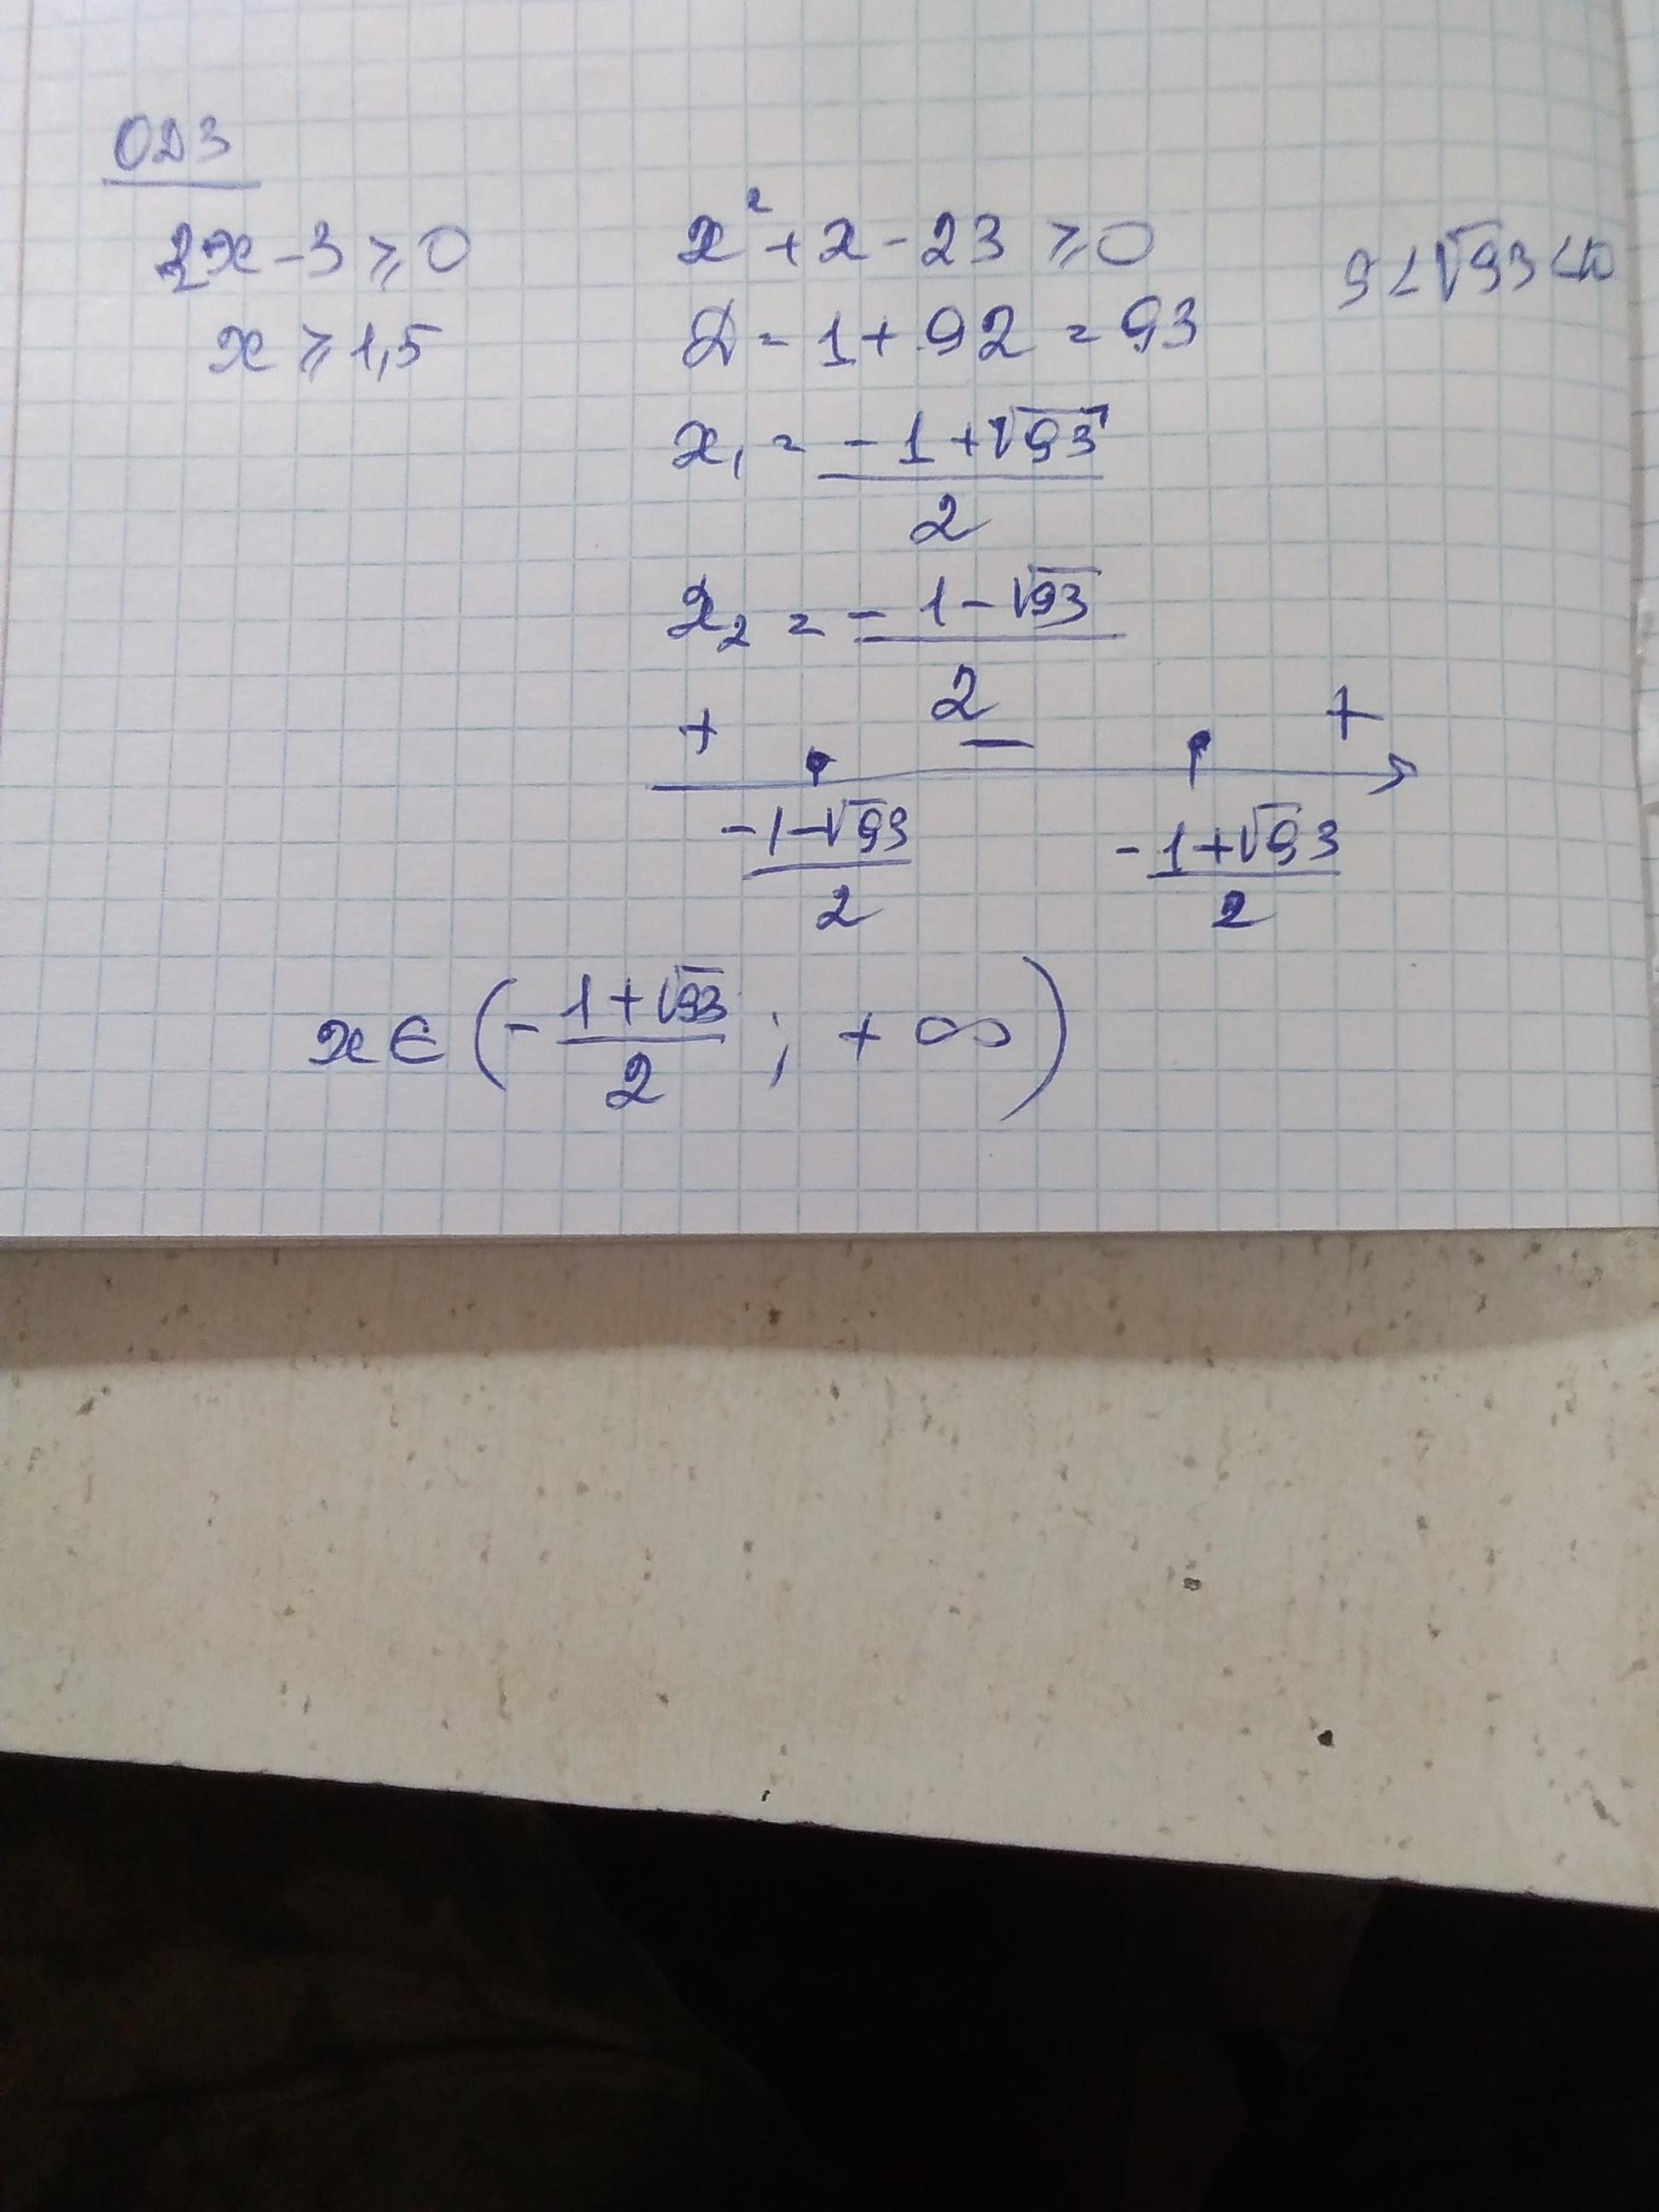 ОДЗ
2x - 3 ⩾ 0
x ⩾ 1,5
x² + x - 23 ⩾ 0
D = 1 + 92 = 93
x₁ = (-1 + √93) / 2
x₂ = (-1 - √93) / 2
+ − +
(-1 - √93) / 2    (-1 + √93) / 2
9 < √93 < 10
x ∈ (-(1 + √93) / 2 ; +∞)